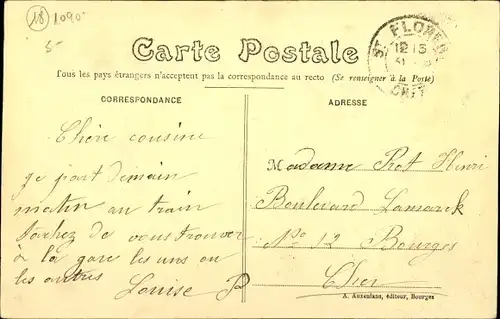 18
1090
5
Carte Postale
Tous les pays étrangers n'acceptent pas la correspondance au recto (Se renseigner à la Poste)
ST FLOREN
12 15
CHER
CORRESPONDANCE
Chère cousine
je part demain
matin au train
tachez de vous trouver
à la gare les uns ou
les autres
Louise P
ADRESSE
Madame Prot Henri
Boulevard Lamarck
No 12 Bourges
Cher
A. Auxenfans, éditeur, Bourges